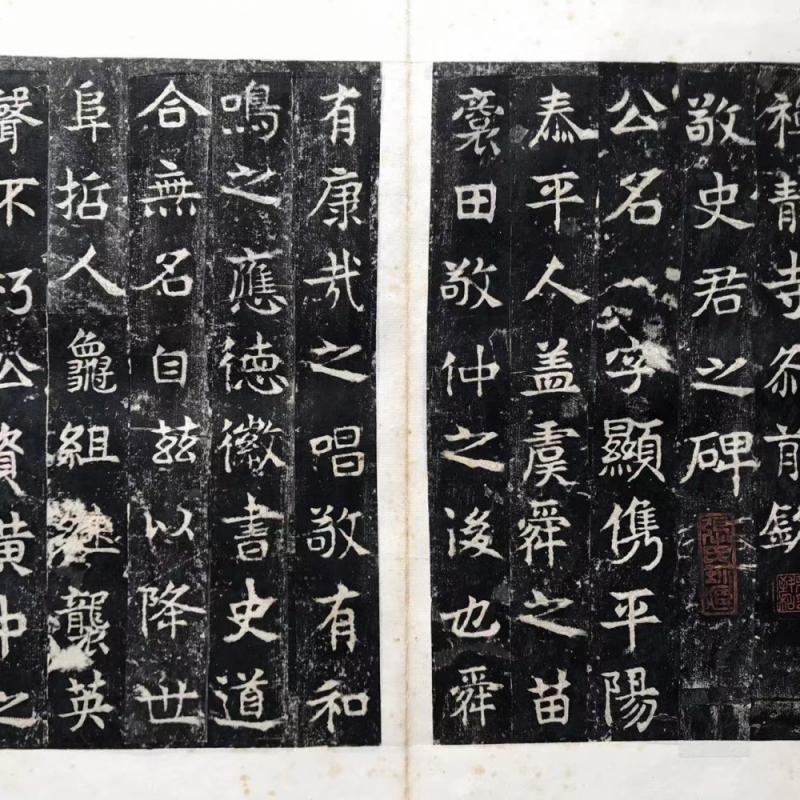 禪靜寺刹前銘
敬史君之碑
公名字顯儁平陽
泰平人盖虞舜之苗
裔田敬仲之後也舜
有康哉之唱敬有和
鳴之應德徽書史道
合無名自茲以降世
阜哲人龜組継襲英
聲不朽公資黃中之